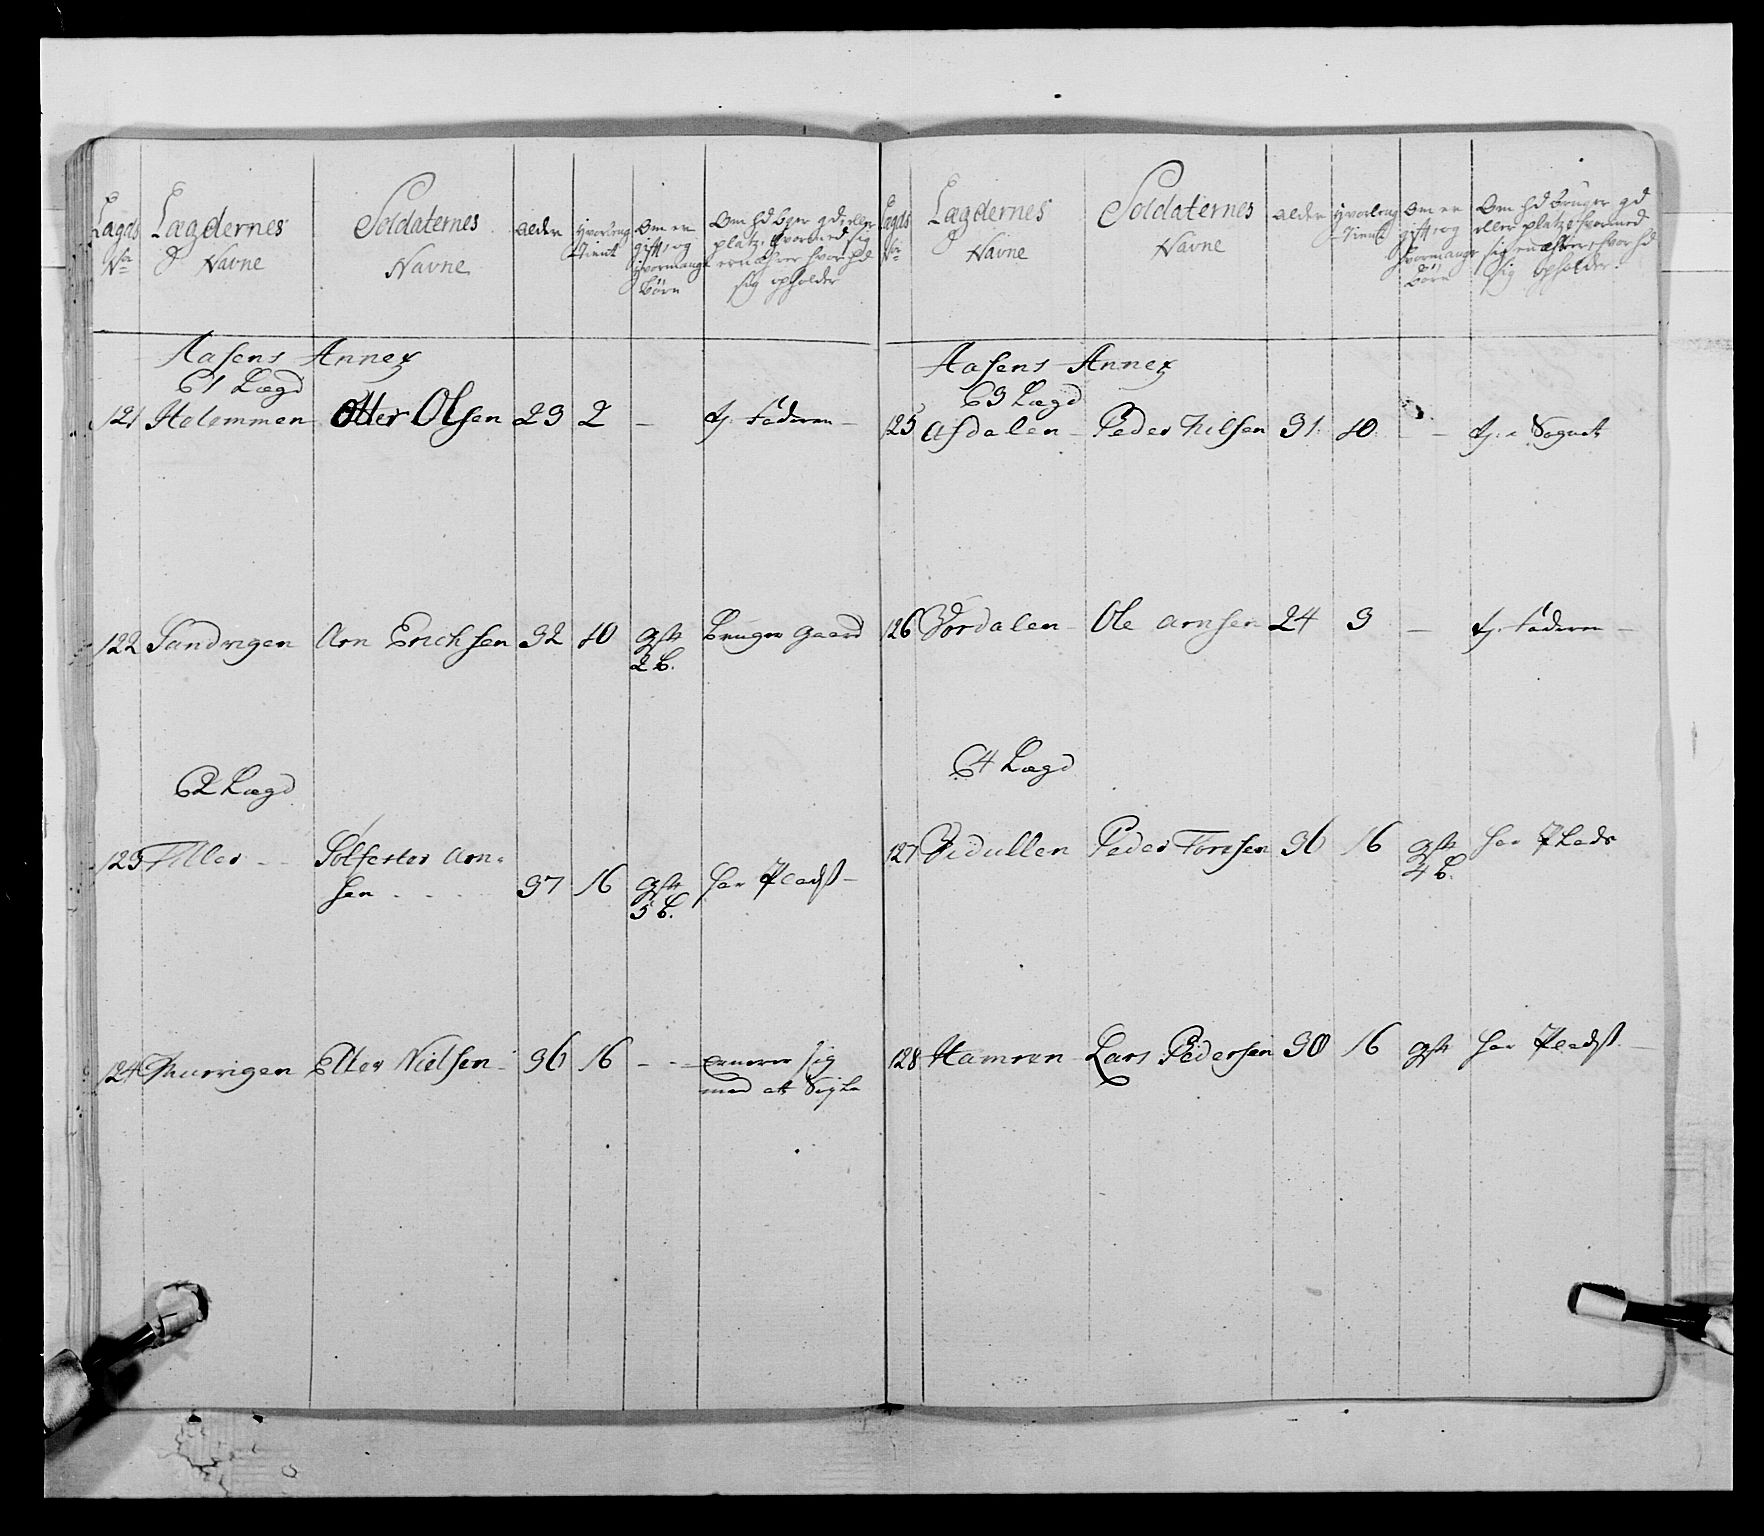 Lægds No
Lægdernes Navne
Soldaternes Navne
alder
Hvorleng tient
Om er gift, og hvormange Børn
Om hd bger gd eller platz, hvormed sig ernæhrer hvor hd sig opholder
Aasens Annex
61 Lægd
121 Holommen Otter Olsen 23 2 — tj. Faderen —
122 Sandvigen Arn Erichsen 32 10 gift 2 b. bruger gaard
62 Lægd
123 Filler - - Solfester Arn-
sen . . . . 37 16 gift 5 b. har Pladst —
124 Thuvigen Eller Nielsen - 36 16 - - - ernerer sig
med att Sigle
Lægds No
Lægdernes Navne
Soldaternes Navne
alder
Hvorleng tient
Om er gift, og hvormange børn
Om hd bruger gd eller platz, hvormed sig ernæhrer, hvor hd sig opholder.
Aasens Annex
63 Lægd
125 Asdalen - Peder Nilsen 31. 10. - — tj. i Sognet
126 Vordalen - Ole Arnsen 24 3 — tj. Faderen —
64 Lægd
127 Vedullen Peder Toresen 36 16 gift 4 b. har Plads
128 Hamren Lars Pedersen 30 16 gift har Pladst —